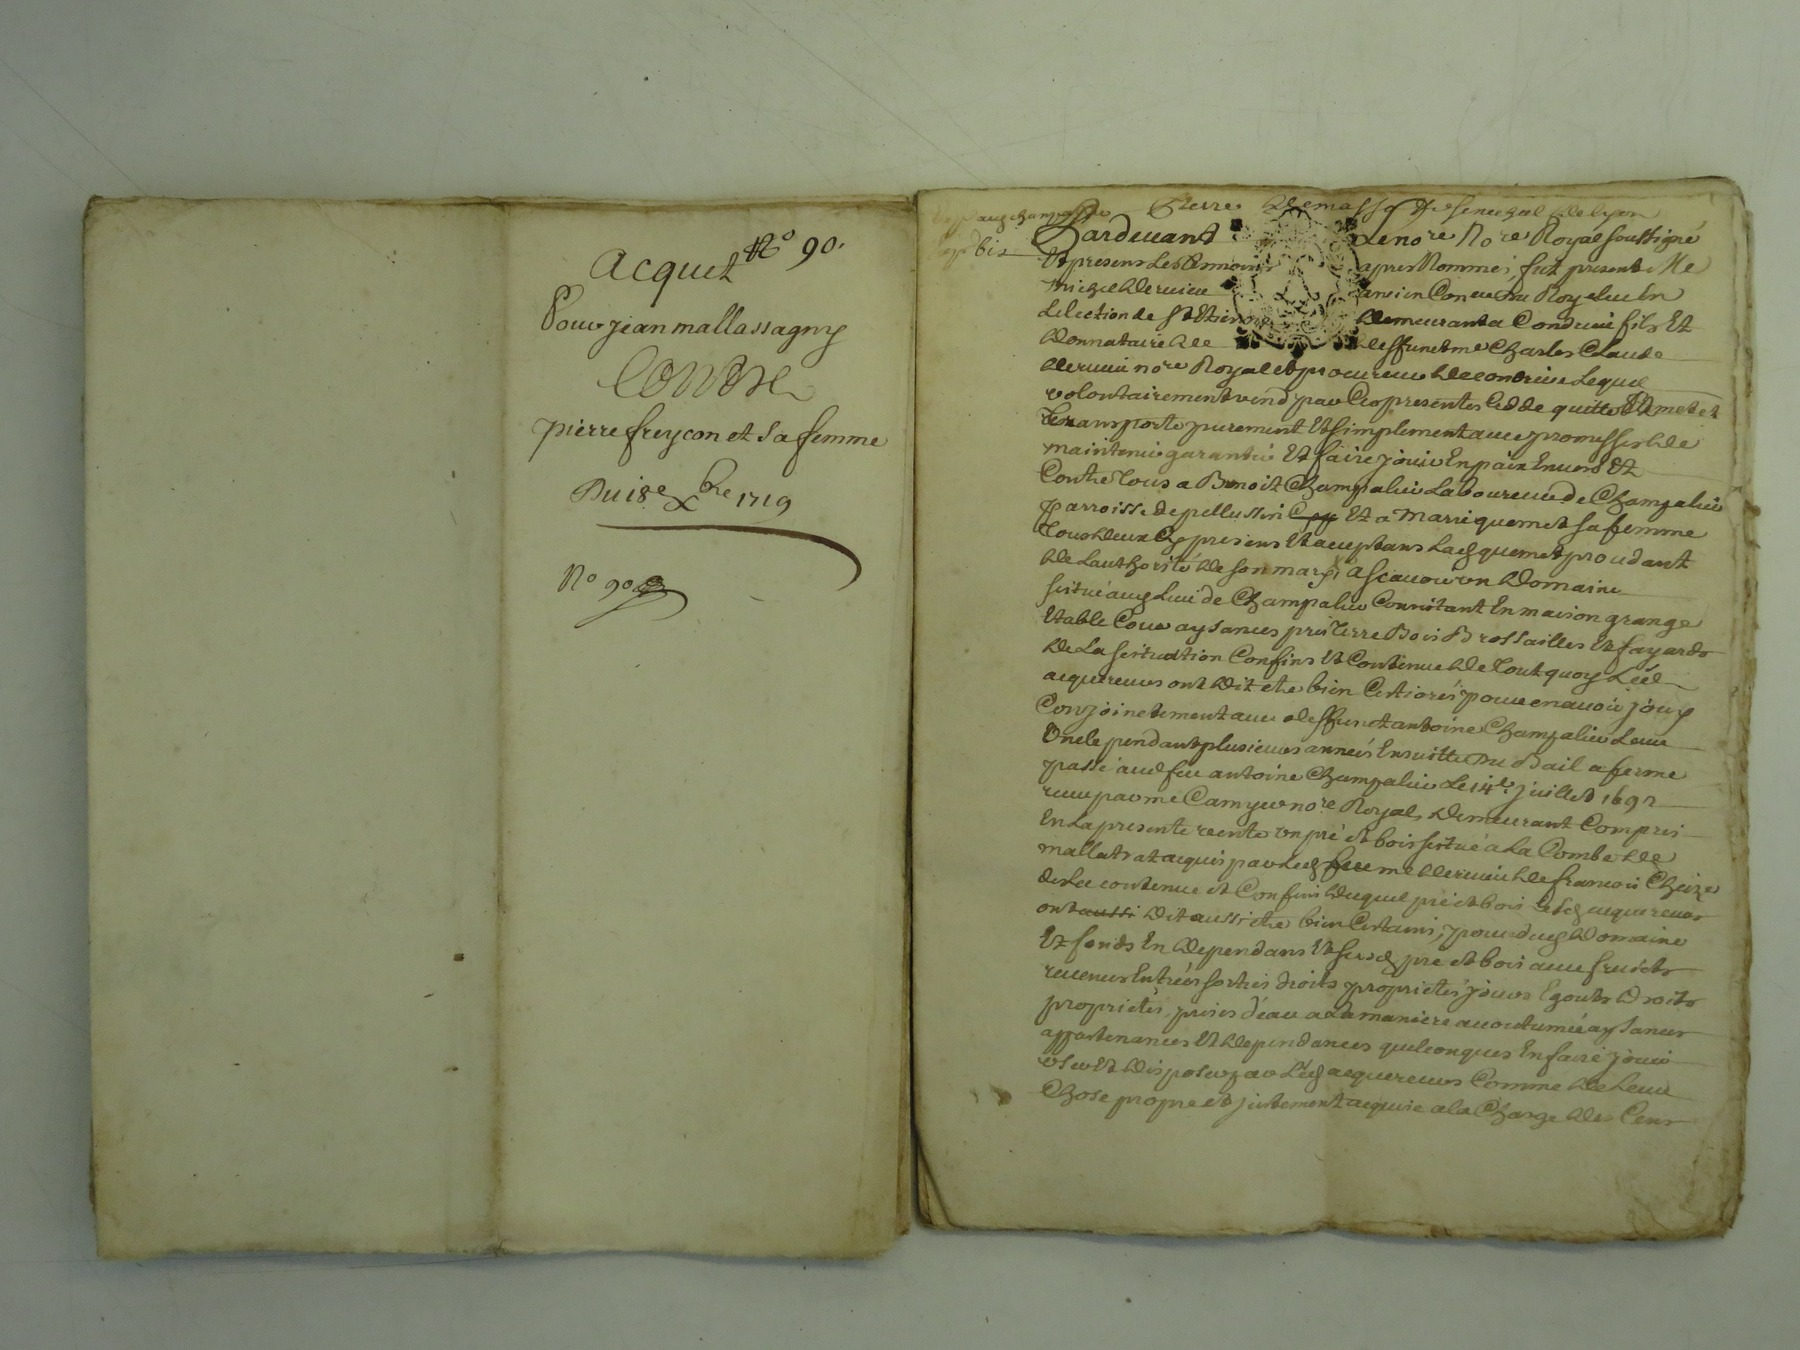 N° 90.
Acquet
Pour jean mallassagny
Contre
pierre freycon et sa femme
Du 18e xbre 1719
N° 90
Pierre senechal de lyon
bis
Pardevant Le nore Rore Royal soussigné
Et presens Les tesmoins apres Nommes fut present Me
michel deruieu ancien Coner du Roy eleu En
Lelection de St Etienne demeurant a Condrieu fils Et
donnataire de deffunct me Charles Claude
deruieu nore Royal et procureur de condrieu Lequel
volontairement vend par Ces presentes Cedde quitte Remet et
transporte purement Et simplement avec promesses de
maintenir garantir Et faire jouir En paix Envers Et
Contre tous a Benoit Champalier Laboureur de Champalier
parroisse de pellussin Et a Marie quemet sa femme
Tous deux Cy presens Et acceptans Lad quemet procedant
de Lauthorité de son mary a scavoir un Domaine
scitué aud Lieu de Champalier Consistant En maison grange
Etable Cour aysances prés terre Bois Brossailles Et fayards
de La scituation Confins Et Contenue de Tout quoy Led
acquereurs ont dit etre bien Certiorés pour en avoir jouy
Conjoinctement avec deffunct antoine Champalier Leur
Oncle pendant plusieurs années Ensuitte du Bail a ferme
passé aud feu antoine Champalier Le 14e juillet 1692
receu par me Camyer nore Royal, demeurant Compris
En La presente vente un pré et bois scitué a La Combe de
mallatrat acquis par Led feu me deruieu de francois Cheize
de La contenue et Confins duquel pré et bois Lesd acquereurs
ont aussi dit aussi etre bien Certains, pour dud Domaine
Et fonds En dependans Et susd pré et bois avec fruicts
revenus Entrées sorties droits proprietés jours Egouts droits
proprietés, prises d'eau a La maniere accoutumée aysances
appartenances Et dependances quelconques En faire jouir
user Et disposer par Lesd acquereurs Comme de Leur
Chose propre et justement acquise a la Charge des Cens